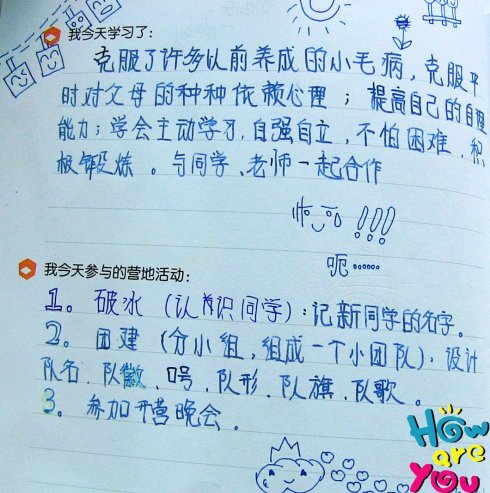 我今天学习了:
克服了许多以前养成的小毛病,克服平
时对父母的种种依赖心理;提高自己的自理
能力;学会主动学习,自强自立,不怕困难,积
极锻炼。与同学、老师一起合作
!!!
呃……
我今天参与的营地活动:
1。破冰(认识同学):记新同学的名字。
2。团建(分小组,组成一个小团队):设计
队名、队徽、口号、队形、队旗、队歌。
3。参加开营晚会。
HOW are YOU